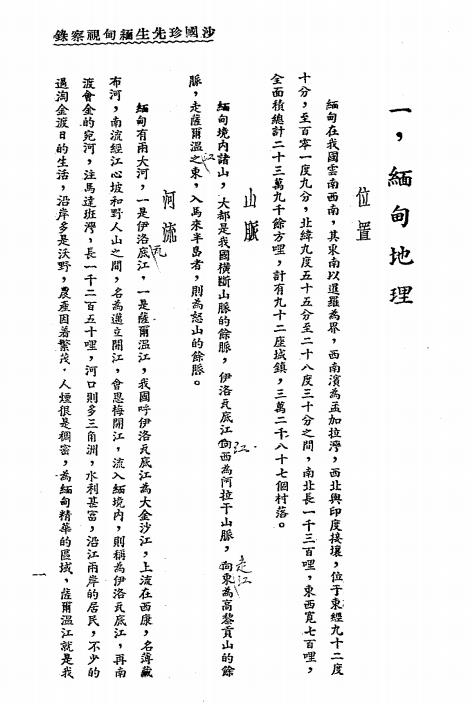 沙國珍先生緬甸視察錄
一，緬甸地理
位置
緬甸在我國雲南西南，其東南以暹羅為界，西南濱為孟加拉灣，西北與印度接壤，位于東經九十二度
十分，至百零一度九分，北緯九度五十五分至二十八度三十分之間，南北長一千三百哩，東西寬七百哩，
全面積總計二十三萬九千餘方哩，計有九十二座城鎮，三萬二千八十七個村落。
山脈
緬甸境內諸山，大都是我國橫斷山脈的餘脈，伊洛瓦底江向西為阿拉干山脈，向東為高黎貢山的餘
江
走江
脈，走薩爾溫之東，入馬來半島者，則為怒山的餘脈。
江
河流
緬甸有兩大河，一是伊洛底江，一是薩爾溫江，我國呼伊洛瓦底江為大金沙江，上流在西康，名薄藏
瓦
布河，南流經江心坡和野人山之間，名為邁立開江，會恩梅開江，流入緬境內，則稱為伊洛瓦底江，再南
渡會金的宛河，注馬達班灣，長一千二百五十哩，河口則多三角洲，水利甚富，沿江兩岸的居民，不少的
過淘金渡日的生活，沿岸多是沃野，農產因着繁茂，人煙很是稠密，為緬甸精華的區域，薩爾溫江就是我
一